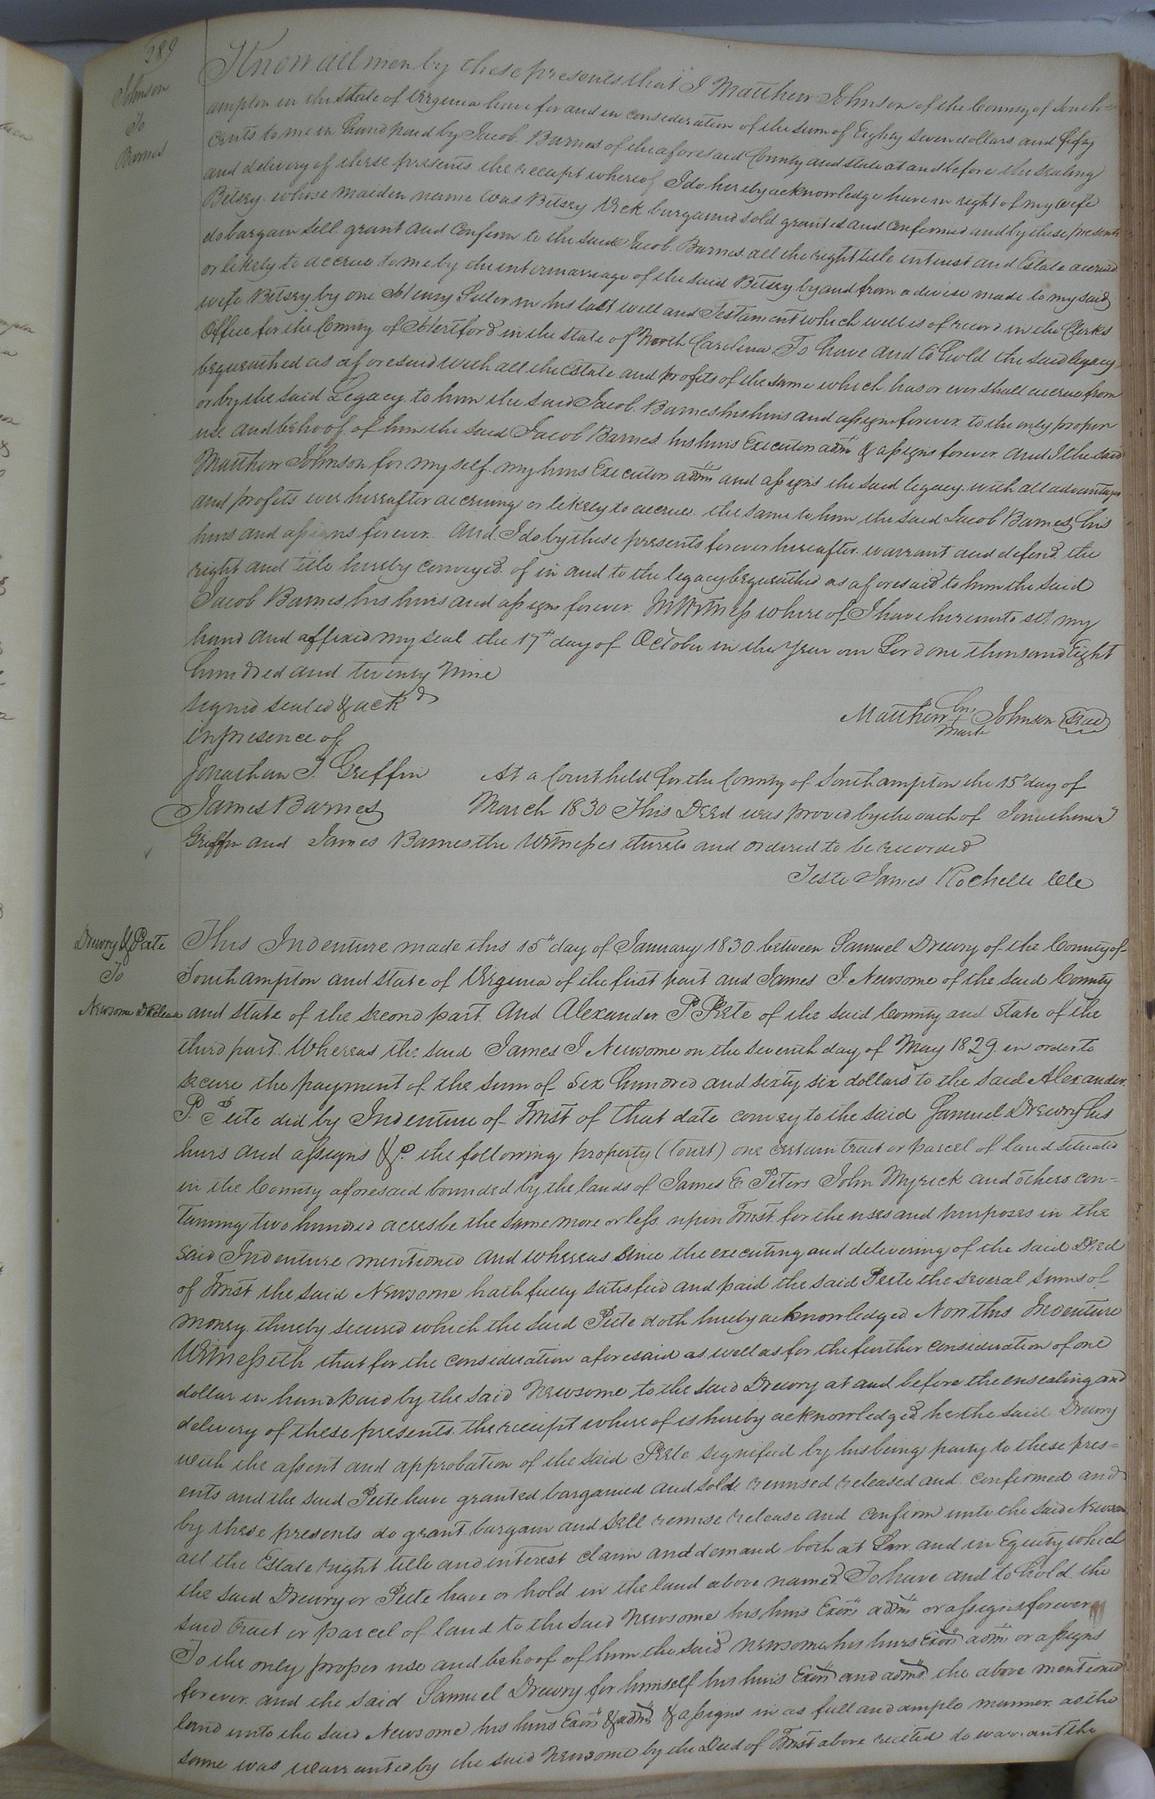 289
Johnson
To
Barnes
Know all men by these presents that I Matthew Johnson of the County of South=
ampton in the State of Virginia have for and in consideration of the sum of Eighty Seven dollars and fifty
Cents to me in hand paid by Jacob Barnes of the aforesaid County and state at and before the sealing
and delivery of these presents the receipt whereof I do hereby acknowledge have in right of my wife
Betsey whose maiden name was Betsey Vick bargained sold granted and confirmed and by these presents
do bargain sell grant and Confirm to the said Jacob Barnes all the right title interest and Estate accrued
or likely to accrue to me by the intermarriage of the said Betsey by and from a devise made to my said
wife Betsey by one Henry in his last will and Testament which will is of record in the Clerks
Office for the County of Hertford in the state of North Carolina To have and to hold the said legacy
bequeathed as aforesaid with all the Estate and profits of the same which has or ever shall accrue from
or by the said Legacy to him the said Jacob Barnes his heirs and assigns forever to the only proper
use and behoof of him the said Jacob Barnes his heirs Executors adm.rs & assigns forever. And I the said
Matthew Johnson for myself my heirs Executors adm.rs and assigns the said legacy with all advantages
and profits ever hereafter accruing or likely to accrue the same to him the said Jacob Barnes his
heirs and assigns forever. And I do by these presents forever hereafter warrant and defend the
right and title hereby conveyed of in and to the legacy bequeathed as aforesaid to him the said
Jacob Barnes his heirs and assigns forever. In Witness whereof I have hereunto set my
hand and affixed my seal the 17th day of October in the Year our Lord one thousand Eight
hundred and twenty Nine
signed sealed & ackd
in presence of
Matthew his + mark Johnson (Seal)
Jonathan T. Griffin
James Barnes
At a Court held for the County of Southampton the 15th day of
March 1830 This Deed was proved by the oath of Jonathan T
Griffin and James Barnes the Witnesses thereto and ordered to be recorded
Teste James Rochelle Clk
Drewry & Peete
To
Newsome Release
This Indenture made this 15th day of January 1830 between Samuel Drewry of the County of
Southampton and State of Virginia of the first part and James J Newsome of the said County
and state of the second part. And Alexander P Peete of the said County and State of the
third part. Whereas the said James J Newsome on the seventh day of May 1829 in order to
secure the payment of the sum of Six hundred and sixty six dollars to the said Alexander
P. Peete did by Indenture of Trust of that date convey to the said Samuel Drewry his
heirs and assigns &c. the following property (towit) one certain tract or parcel of land situate
in the County aforesaid bounded by the lands of James E Peters John Myrick and others con=
taining two hundred acres be the same more or less upon Trust for the uses and purposes in the
said Indenture mentioned and whereas since the executing and delivering of the said Deed
of Trust the said Newsome hath fully satisfied and paid the said Peete the several sums of
money thereby secured which the said Peete doth hereby acknowledged Now this Indenture
Witnesseth that for the consideration aforesaid as well as for the further consideration of one
dollar in hand paid by the said Newsome to the said Drewry at and before the ensealing and
delivery of these presents the receipt whereof is hereby acknowledged he the said Drewry
with the assent and approbation of the said Peete signified by his being party to these pres=
ents and the said Peete have granted bargained and sold remised released and confirmed and
by these presents do grant bargain and sell remise release and confirm unto the said Newsome
all the Estate right title and interest claim and demand both at Law and in Equity which
the said Drewry or Peete have or hold in the land above named To have and to hold the
said tract or parcel of land to the said Newsome his heirs Exors adm.rs or assigns forever
To the only proper use and behoof of him the said Newsome his heirs Exors adm.rs or assigns
forever. and the said Samuel Drewry for himself his heirs Exors and adm.rs the above mentioned
land unto the said Newsome his heirs Exors & adm.rs & assigns in as full and ample manner as the
same was warranted by the said Newsome by the Deed of Trust above recited to warrant the